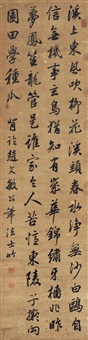 溪上東風吹柳花溪頭春水淨無沙白鷗自
信無機事玄鳥猶知有歲華錦纜牙檣非昨
夢鳳笙龍管是誰家令人苦憶東陵子擬向
園田學種瓜 趙文敏公